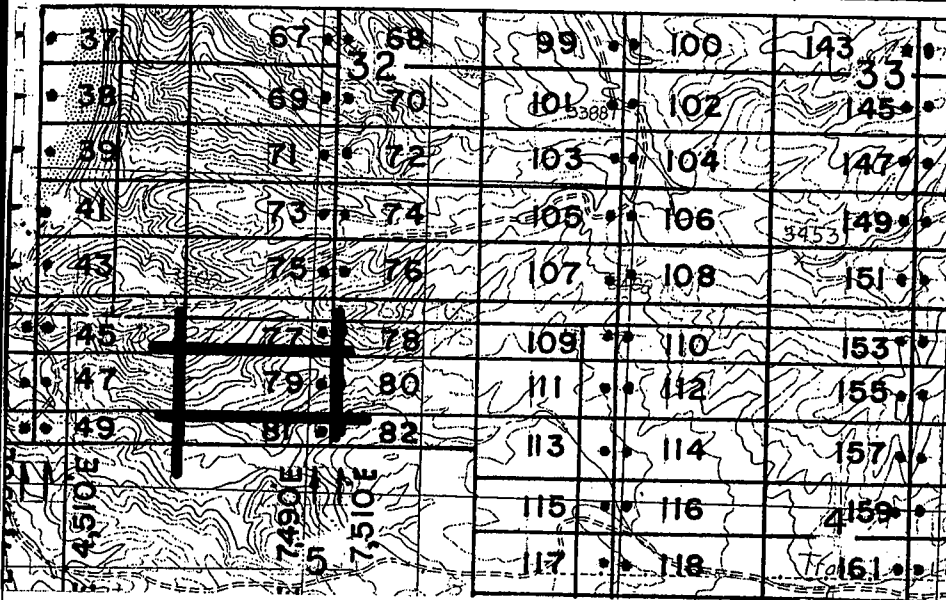 37 67 68 99 100 143
32 33
38 69 70 101 5388T 102 145
39 71 72 103 104 147
41 73 74 105 106 149
5453
43 75 76 107 108 151
45 77 78 109 110 153
47 79 80 111 112 155
49 81 82 113 114 157
4,510'E 7,490E 7,510'E
115 116 4 159
5 117 118 161